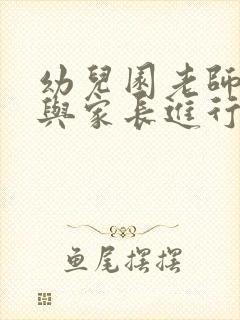 幼兒園老師
與家長進行
鱼尾摆摆